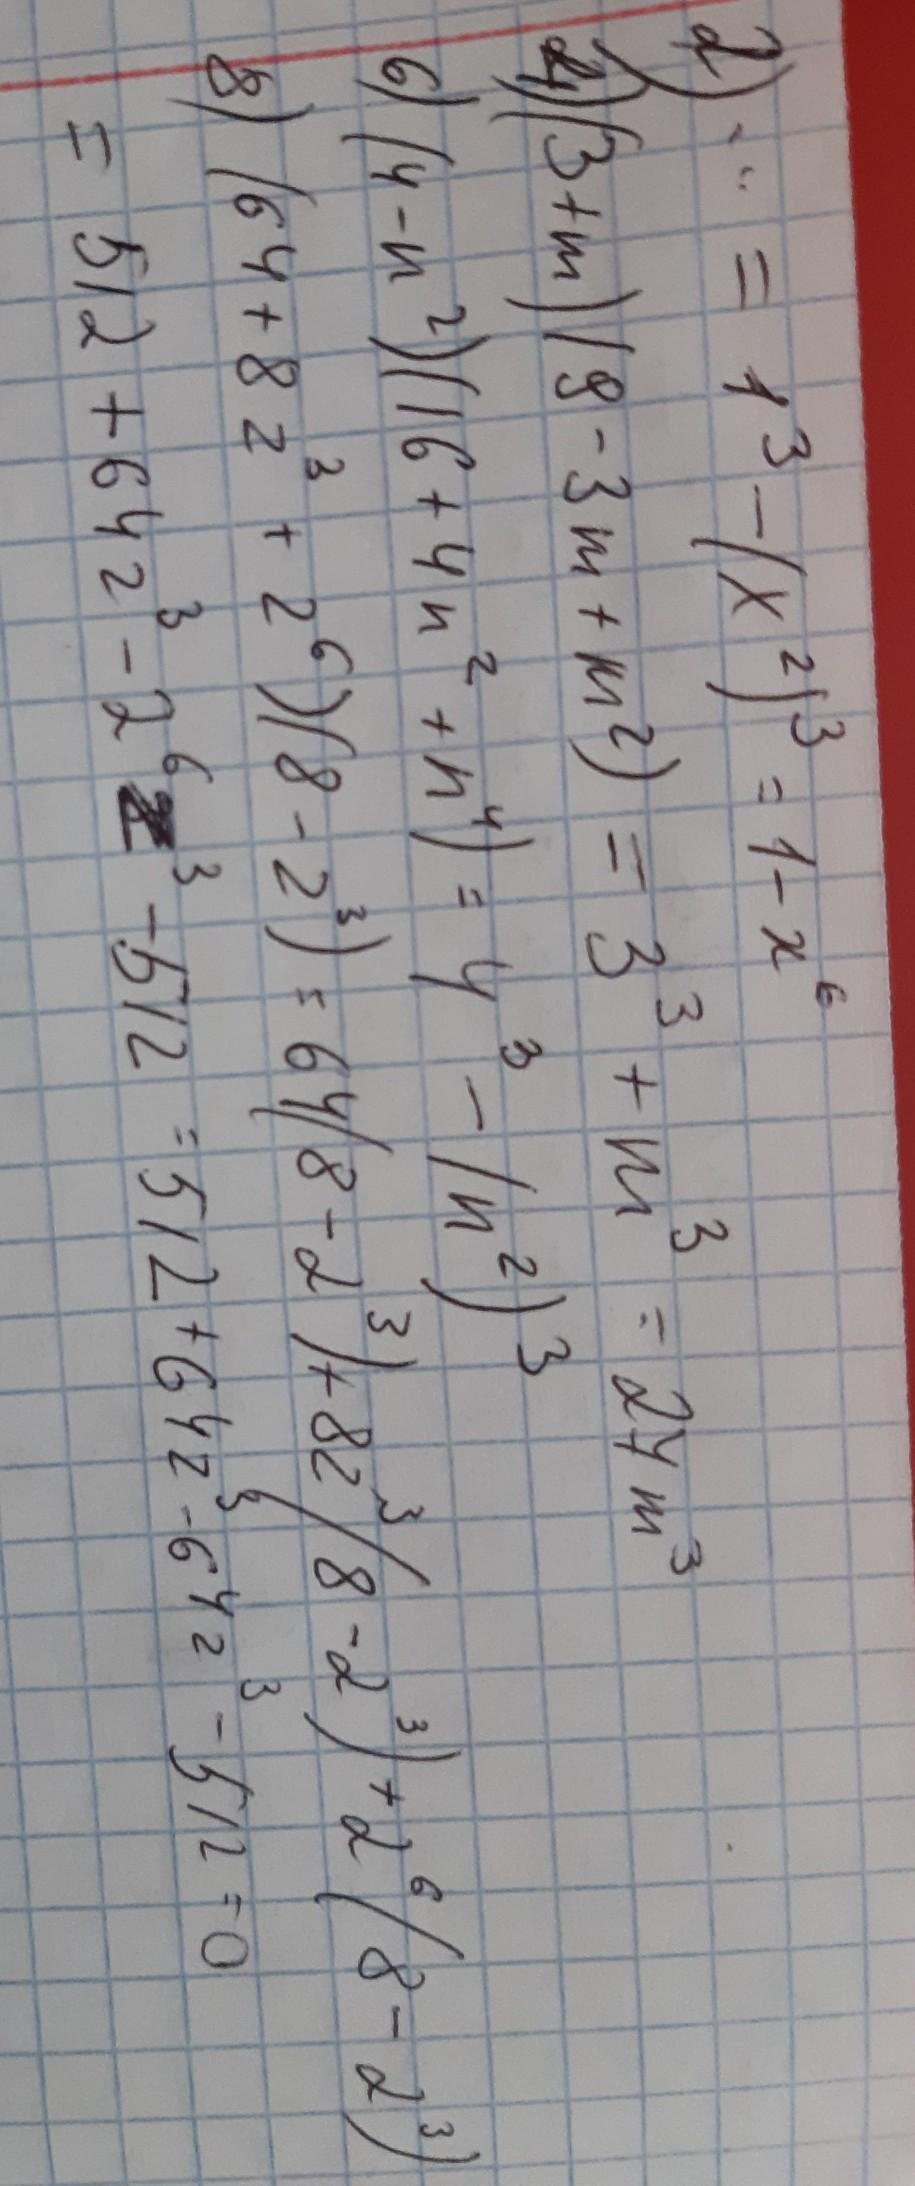 2) ... = 1³ - (x²)³ = 1 - x⁶
4) (3+m)(9-3m+m²) = 3³ + m³ = 27m³
6) (4-n²)(16+4n²+n⁴) = 4³ - (n²)³
8) (64+8z³+2⁶)(8-2³) = 64(8-2³)+8z³(8-2³)+2⁶(8-2³)
= 512 + 64z³ - 2⁶z³ - 512 = 512 + 64z³ - 64z³ - 512 = 0